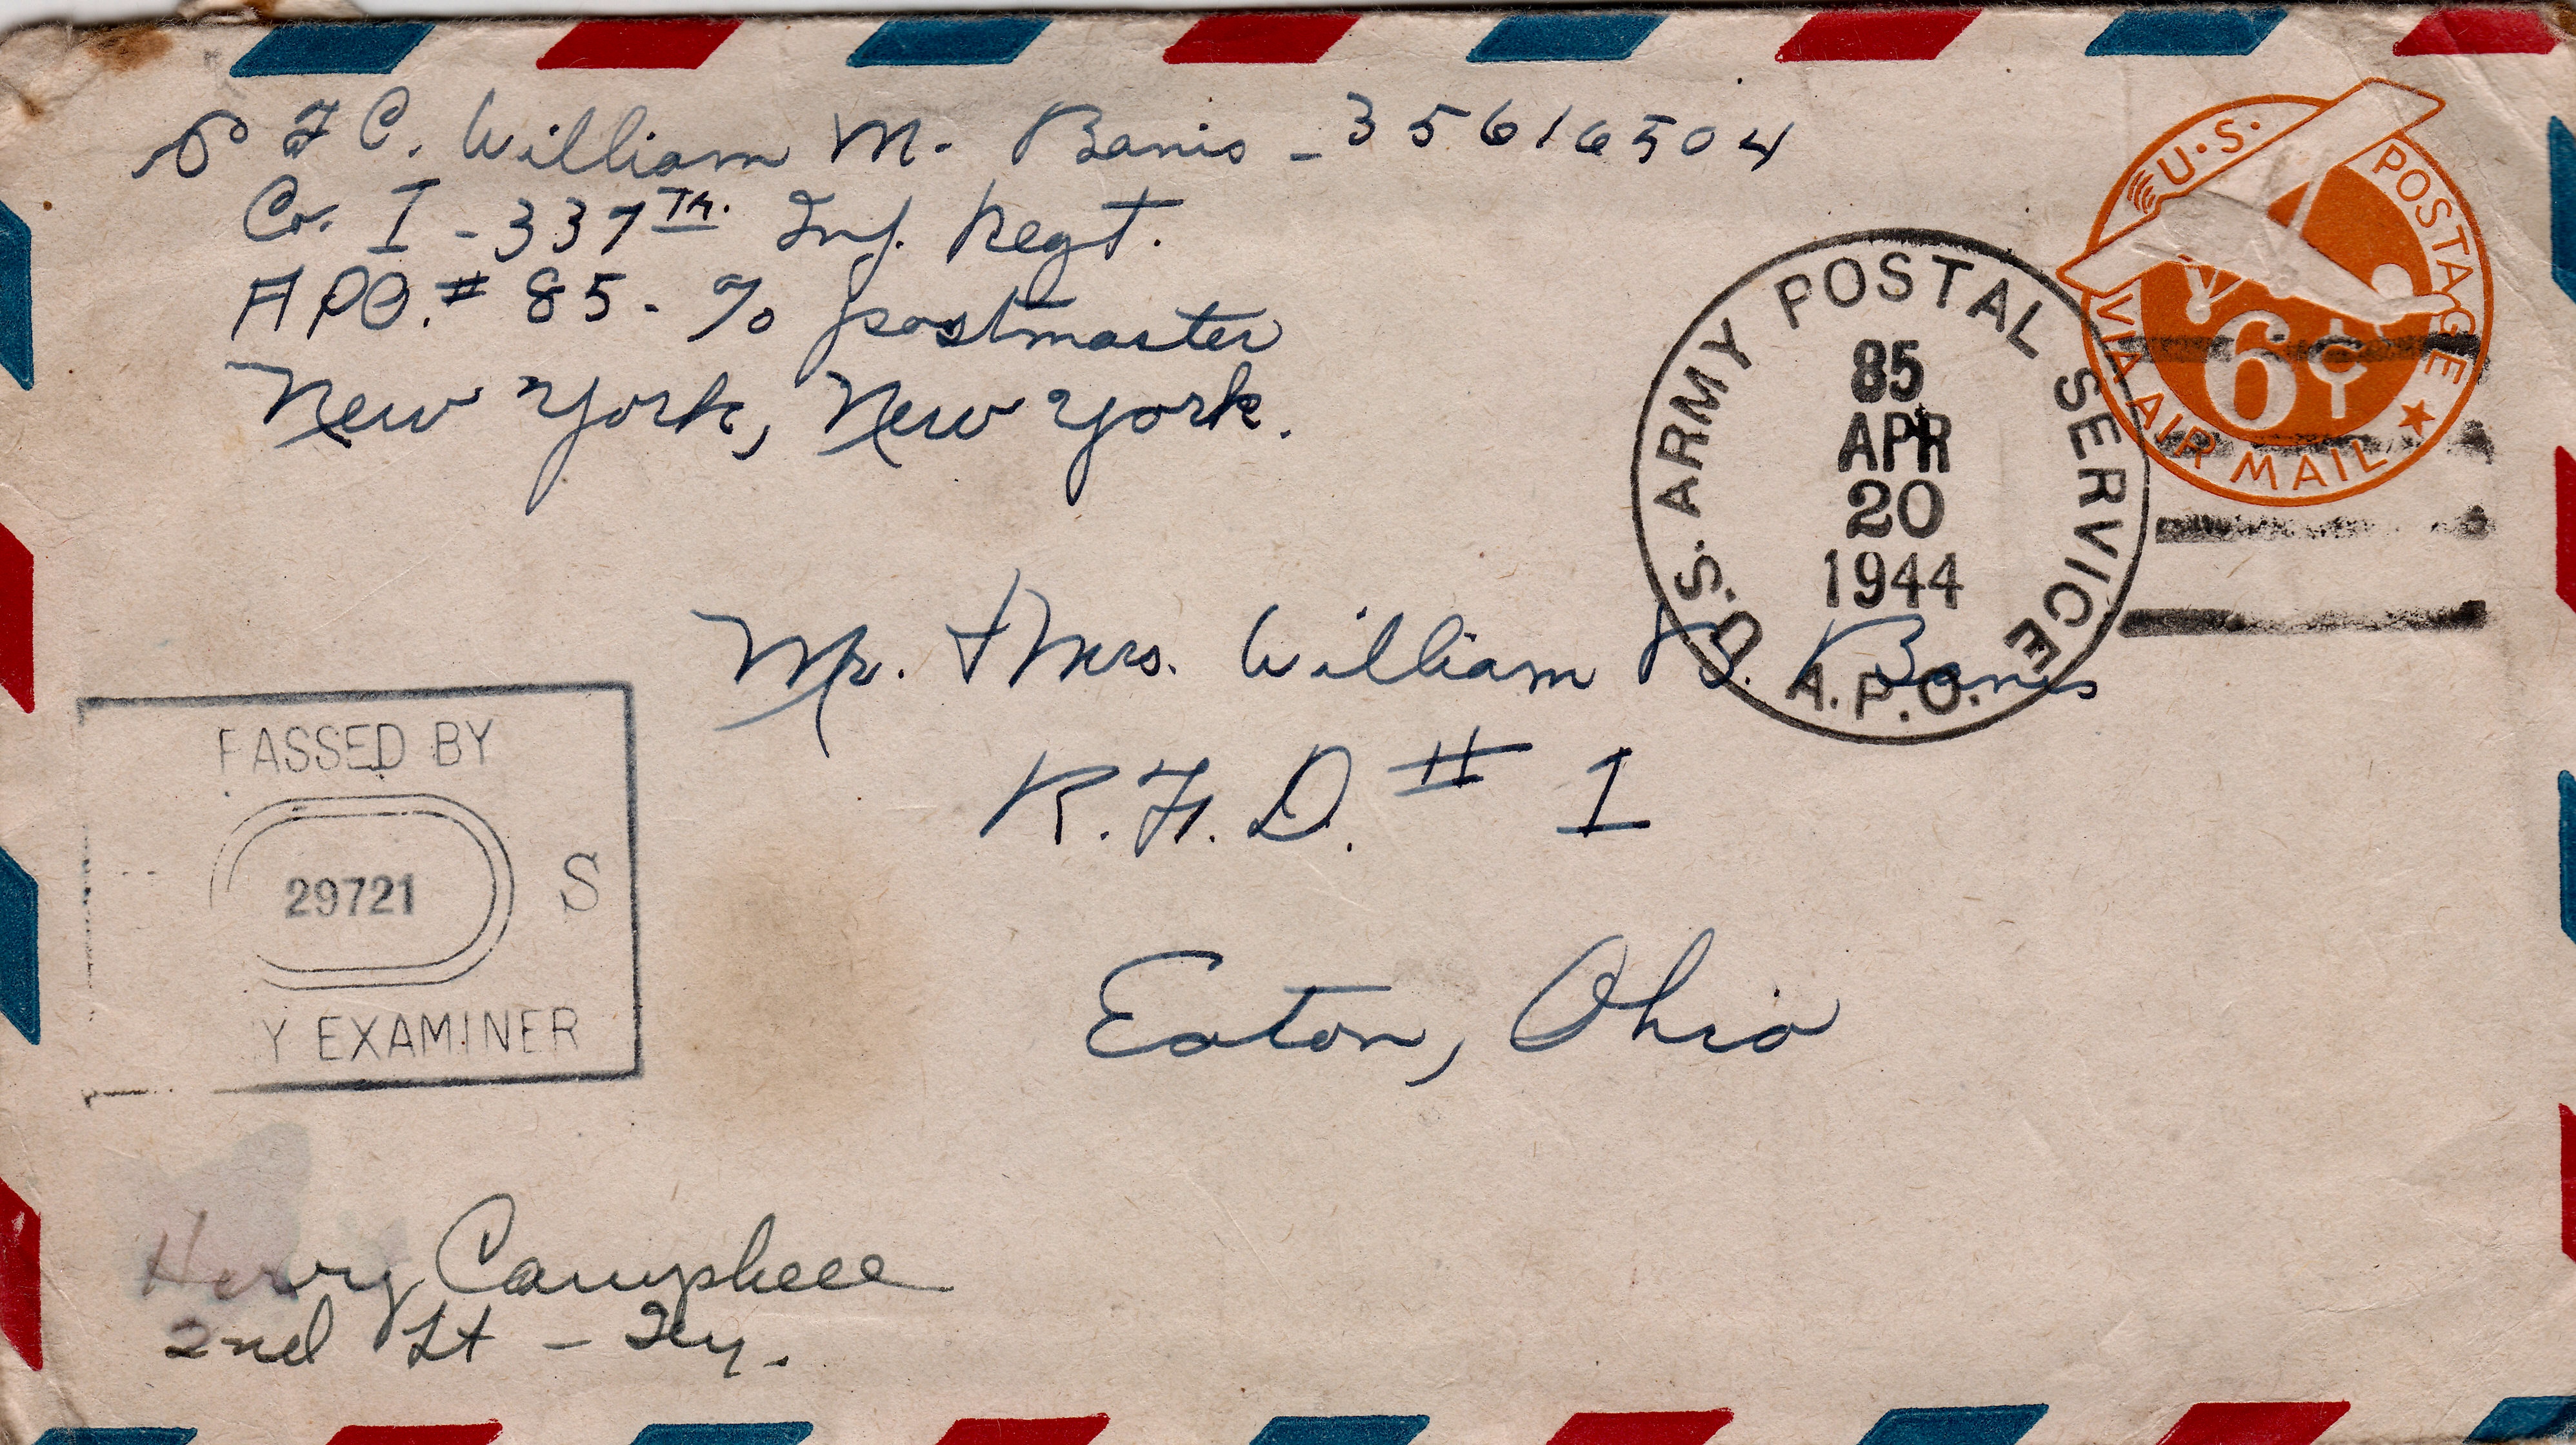 PFC. William M. Banis - 35616504
Co. I - 337TH. Inf. Regt.
A.P.O. # 85 - % postmaster
New York, New York.
U.S. POSTAGE
6¢
VIA AIR MAIL
U.S. ARMY POSTAL SERVICE
85
APR
20
1944
A.P.O.
Mr. + Mrs. William B. Banis
R.F.D. # 1
Eaton, Ohio
PASSED BY
29721
S
Y EXAMINER
Henry Campbell
2nd Lt - Inf.